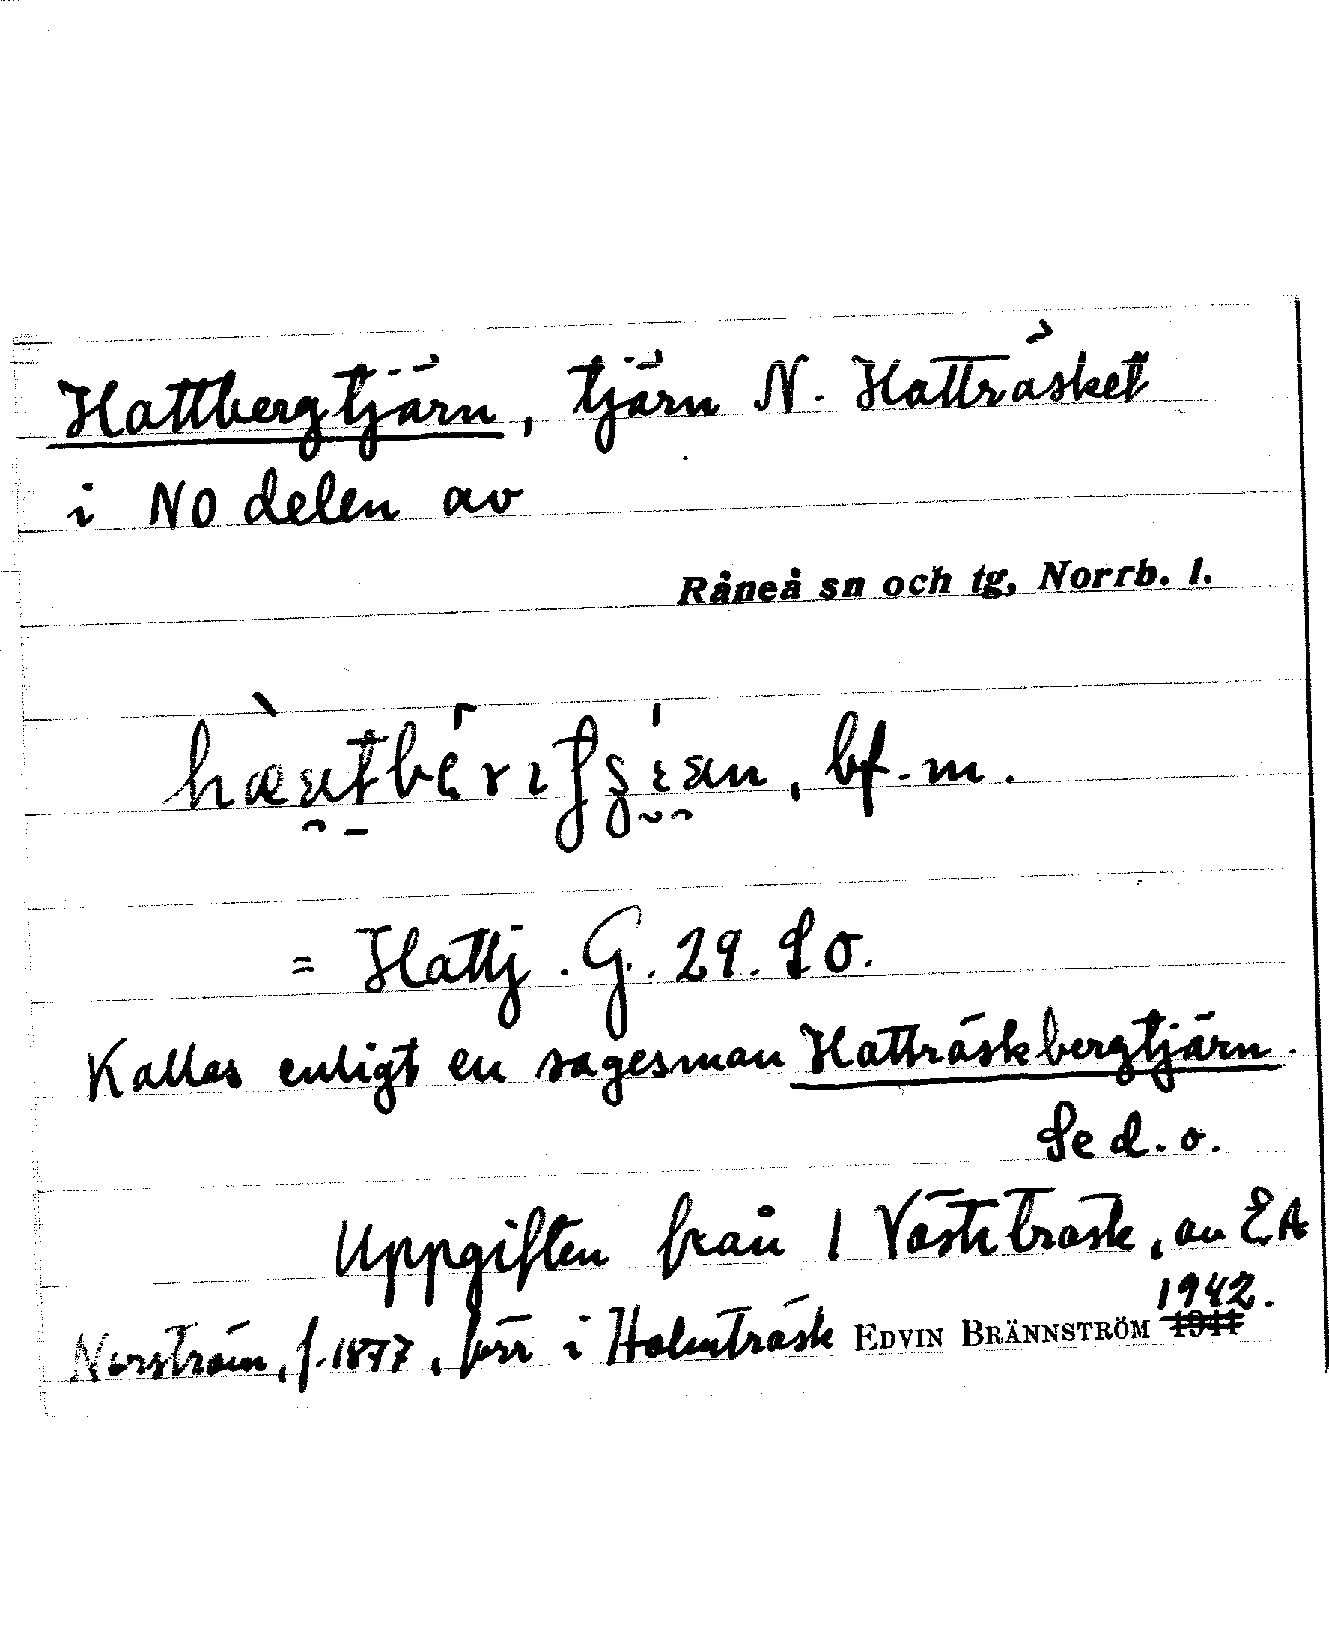 Hattbergtjärn, tjärn N. Hatträsket
i NO delen av
Råneå sn och tg, Norrb. l.
bf. m.
= Hattj. G. 29. SO.
Kallas enligt en sagesman Hatträskbergtjärn.
Se d. o.
Uppgiften från 1 Västibrask, av EA
Norström, f. 1877, förr i Holmträsk EDVIN BRÄNNSTRÖM 1944 1942.